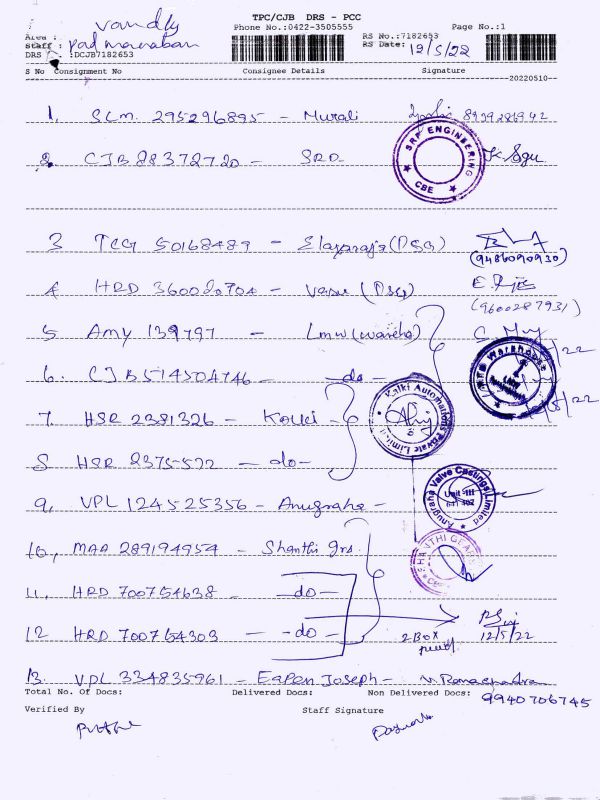 TPC/CJB DRS - PCC
Phone No.:0422-3505555 Page No.:1
Area :
Staff : Padmanaban
DRS :DCJB7182653
RS No.:7182653
RS Date: 12/5/22
S No Consignment No Consignee Details Signature
20220510
1. SLM. 295296895 - Murali
2. CJB 28372720 - SRP
SRP ENGINEERING CBE
3 TCG 50168489 - Elayaraja (PSG)
(9486090930)
4 HRD 360020704 - Vasu (PSG)
(9600287931)
5 AMY 139797 - LMW (Wareho)
6. CJB 514504746 - do -
7. HSR 2381326 - Kalki
Kalki Automations Private Limited
8 HSR 2375-522 - do -
9. VPL 124525356 - Anugraha -
Anugraha Valve Castings Limited Unit III
10, MAA 289194954 - Shanthi grs.
SHANTHI GEARS
11. HRD 700754638 - do -
12 HRD 700754303 - do - 2 Box
12/5/22
13. VPL 334835961 - Eapen Joseph -
9940706745
Total No. Of Docs: Delivered Docs: Non Delivered Docs:
Verified By Staff Signature